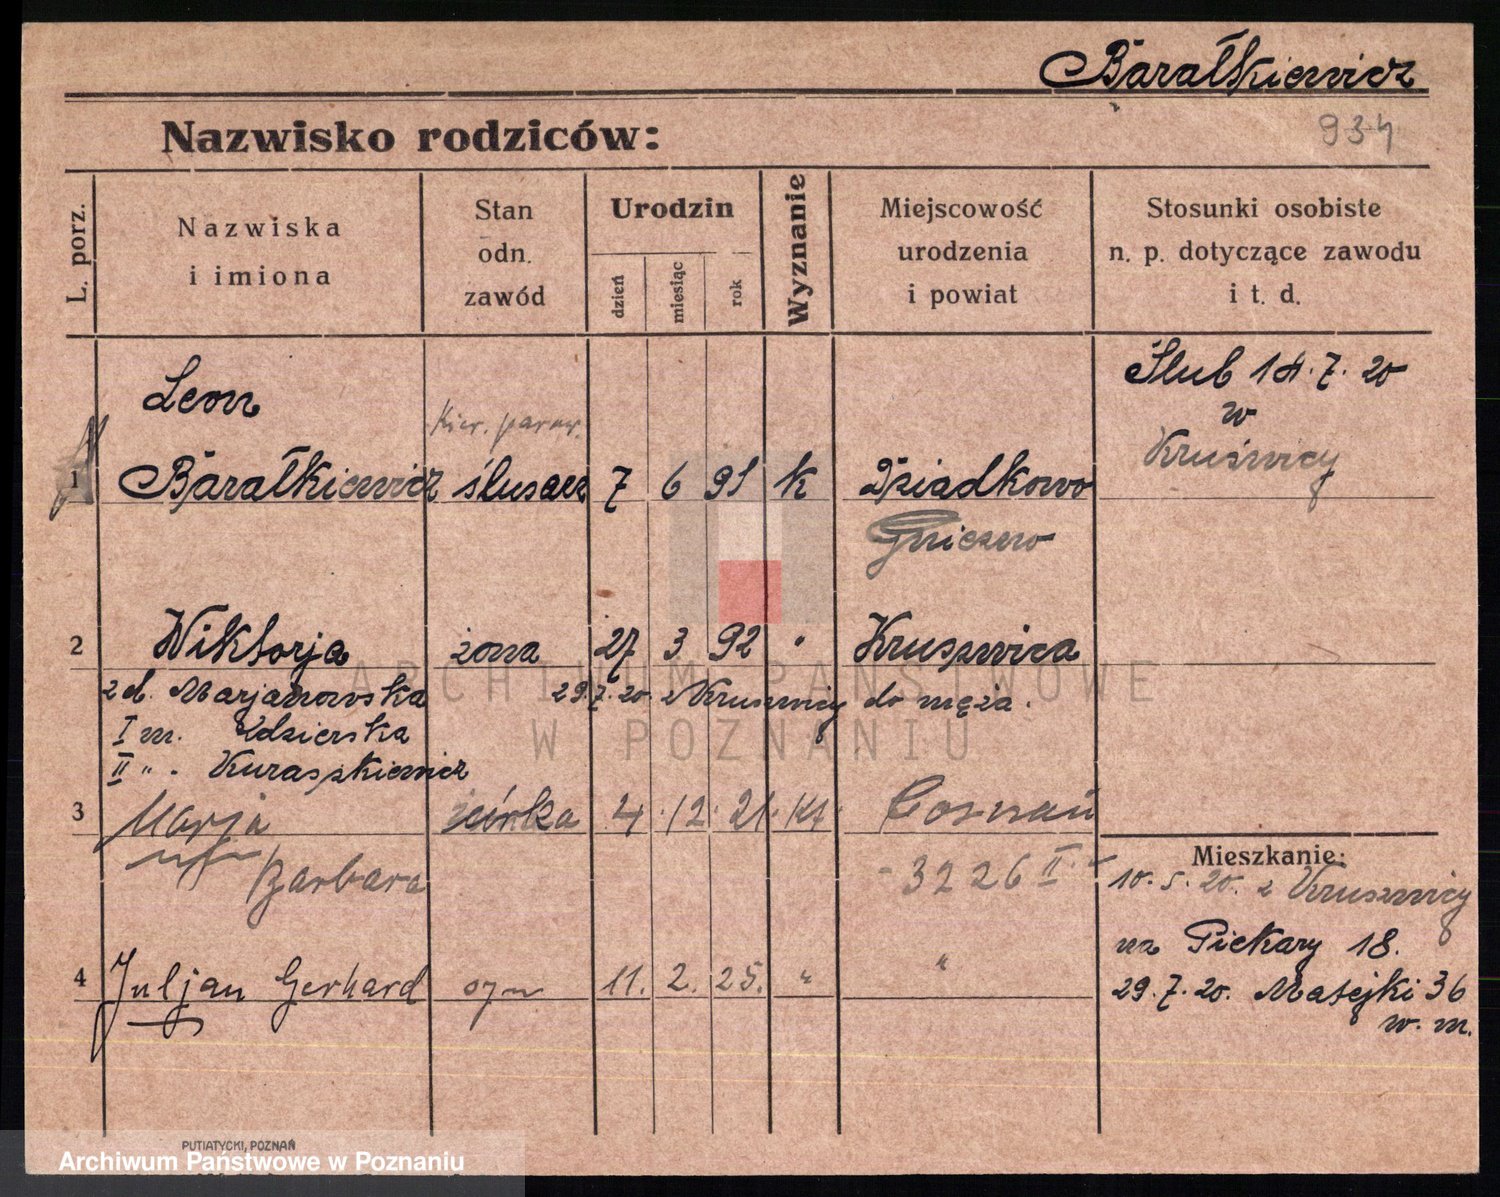 Barałkiewicz
Nazwisko rodziców:
934
L. porz.
Nazwiska
i imiona
Stan
odn.
zawód
Urodzin
dzień
miesiąc
rok
Wyznanie
Miejscowość
urodzenia
i powiat
Stosunki osobiste
n. p. dotyczące zawodu
i t. d.
Leon
Kier. parow.
1 Barałkiewicz ślusarz 7 6 91 k Dziadkowo
Gniezno
Ślub 14. 7. 20
w
Kruświcy
2 Wiktorja żona 27 3 92 " Kruszwica
z d. Marjanowska 29.7.20. z Kruszwicy do męża.
I m. Udzierska
II " . Kuraszkiewicz
3 Marja córka 4. 12. 21. kt. Poznań
Barbara
3226 II.
Mieszkanie:
10. 5. 20. z Kruszwicy
na Piekary 18.
4 Juljan Gerhard syn 11. 2. 25. " "
29. 7. 20. Matejki 36
w. m.
PUTIATYCKI, POZNAŃ
ARCHIWUM PAŃSTWOWE
W POZNANIU
Archiwum Państwowe w Poznaniu